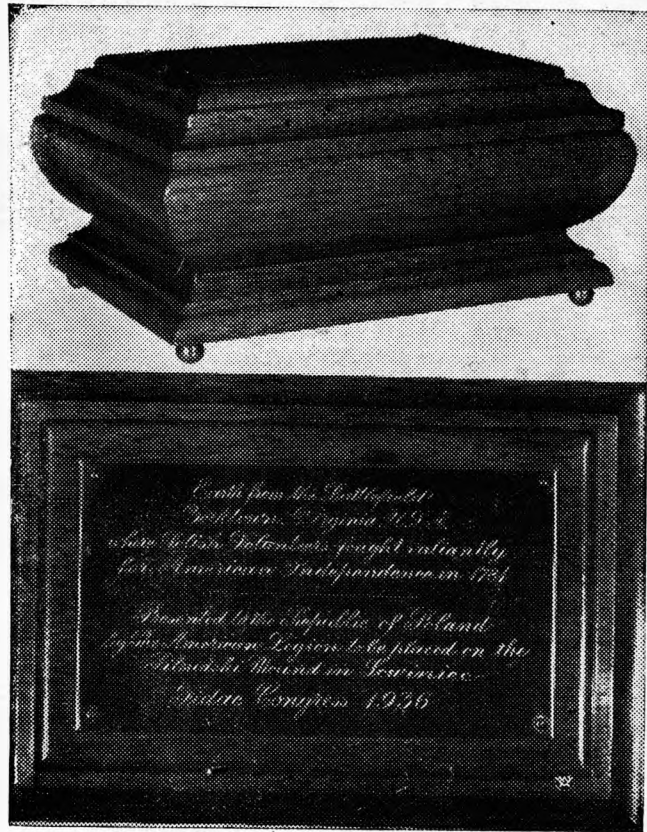 Earth from the Battlefield
Yorktown, Virginia, U.S.A.
where Polish Volunteers fought valiantly
for American Independence in 1781
Presented to the Republic of Poland
by the American Legion to be placed on the
Pilsudski Mound in Sowiniec
Fidac Congress 1936